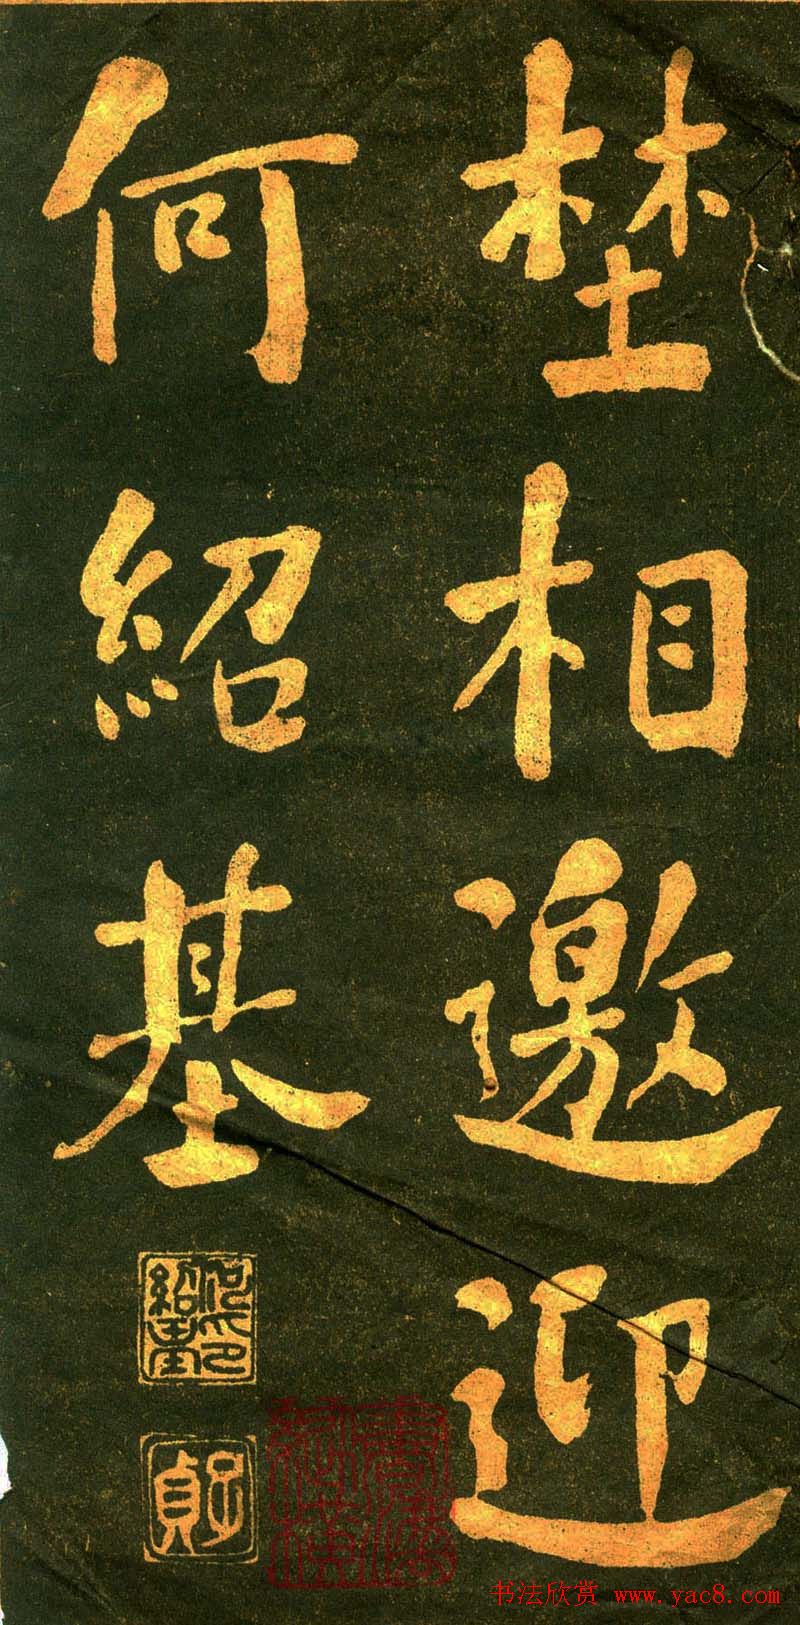 埜相邀迎
何紹基
何紹基印
子貞
书法欣赏 www.yac8.com